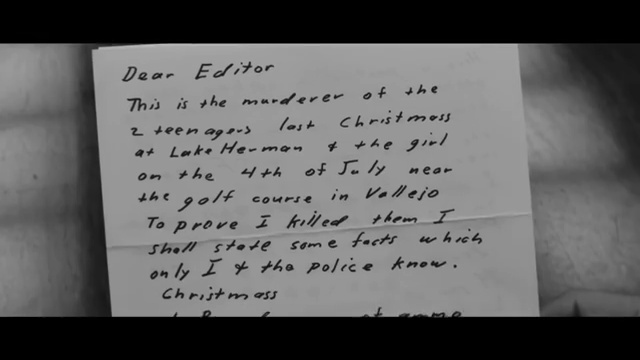 Dear Editor
This is the murderer of the
2 teenagers last Christmass
at Lake Herman & the girl
on the 4th of July near
the golf course in Vallejo
To prove I killed them I
shall state some facts which
only I & the police know.
Christmass
ammo